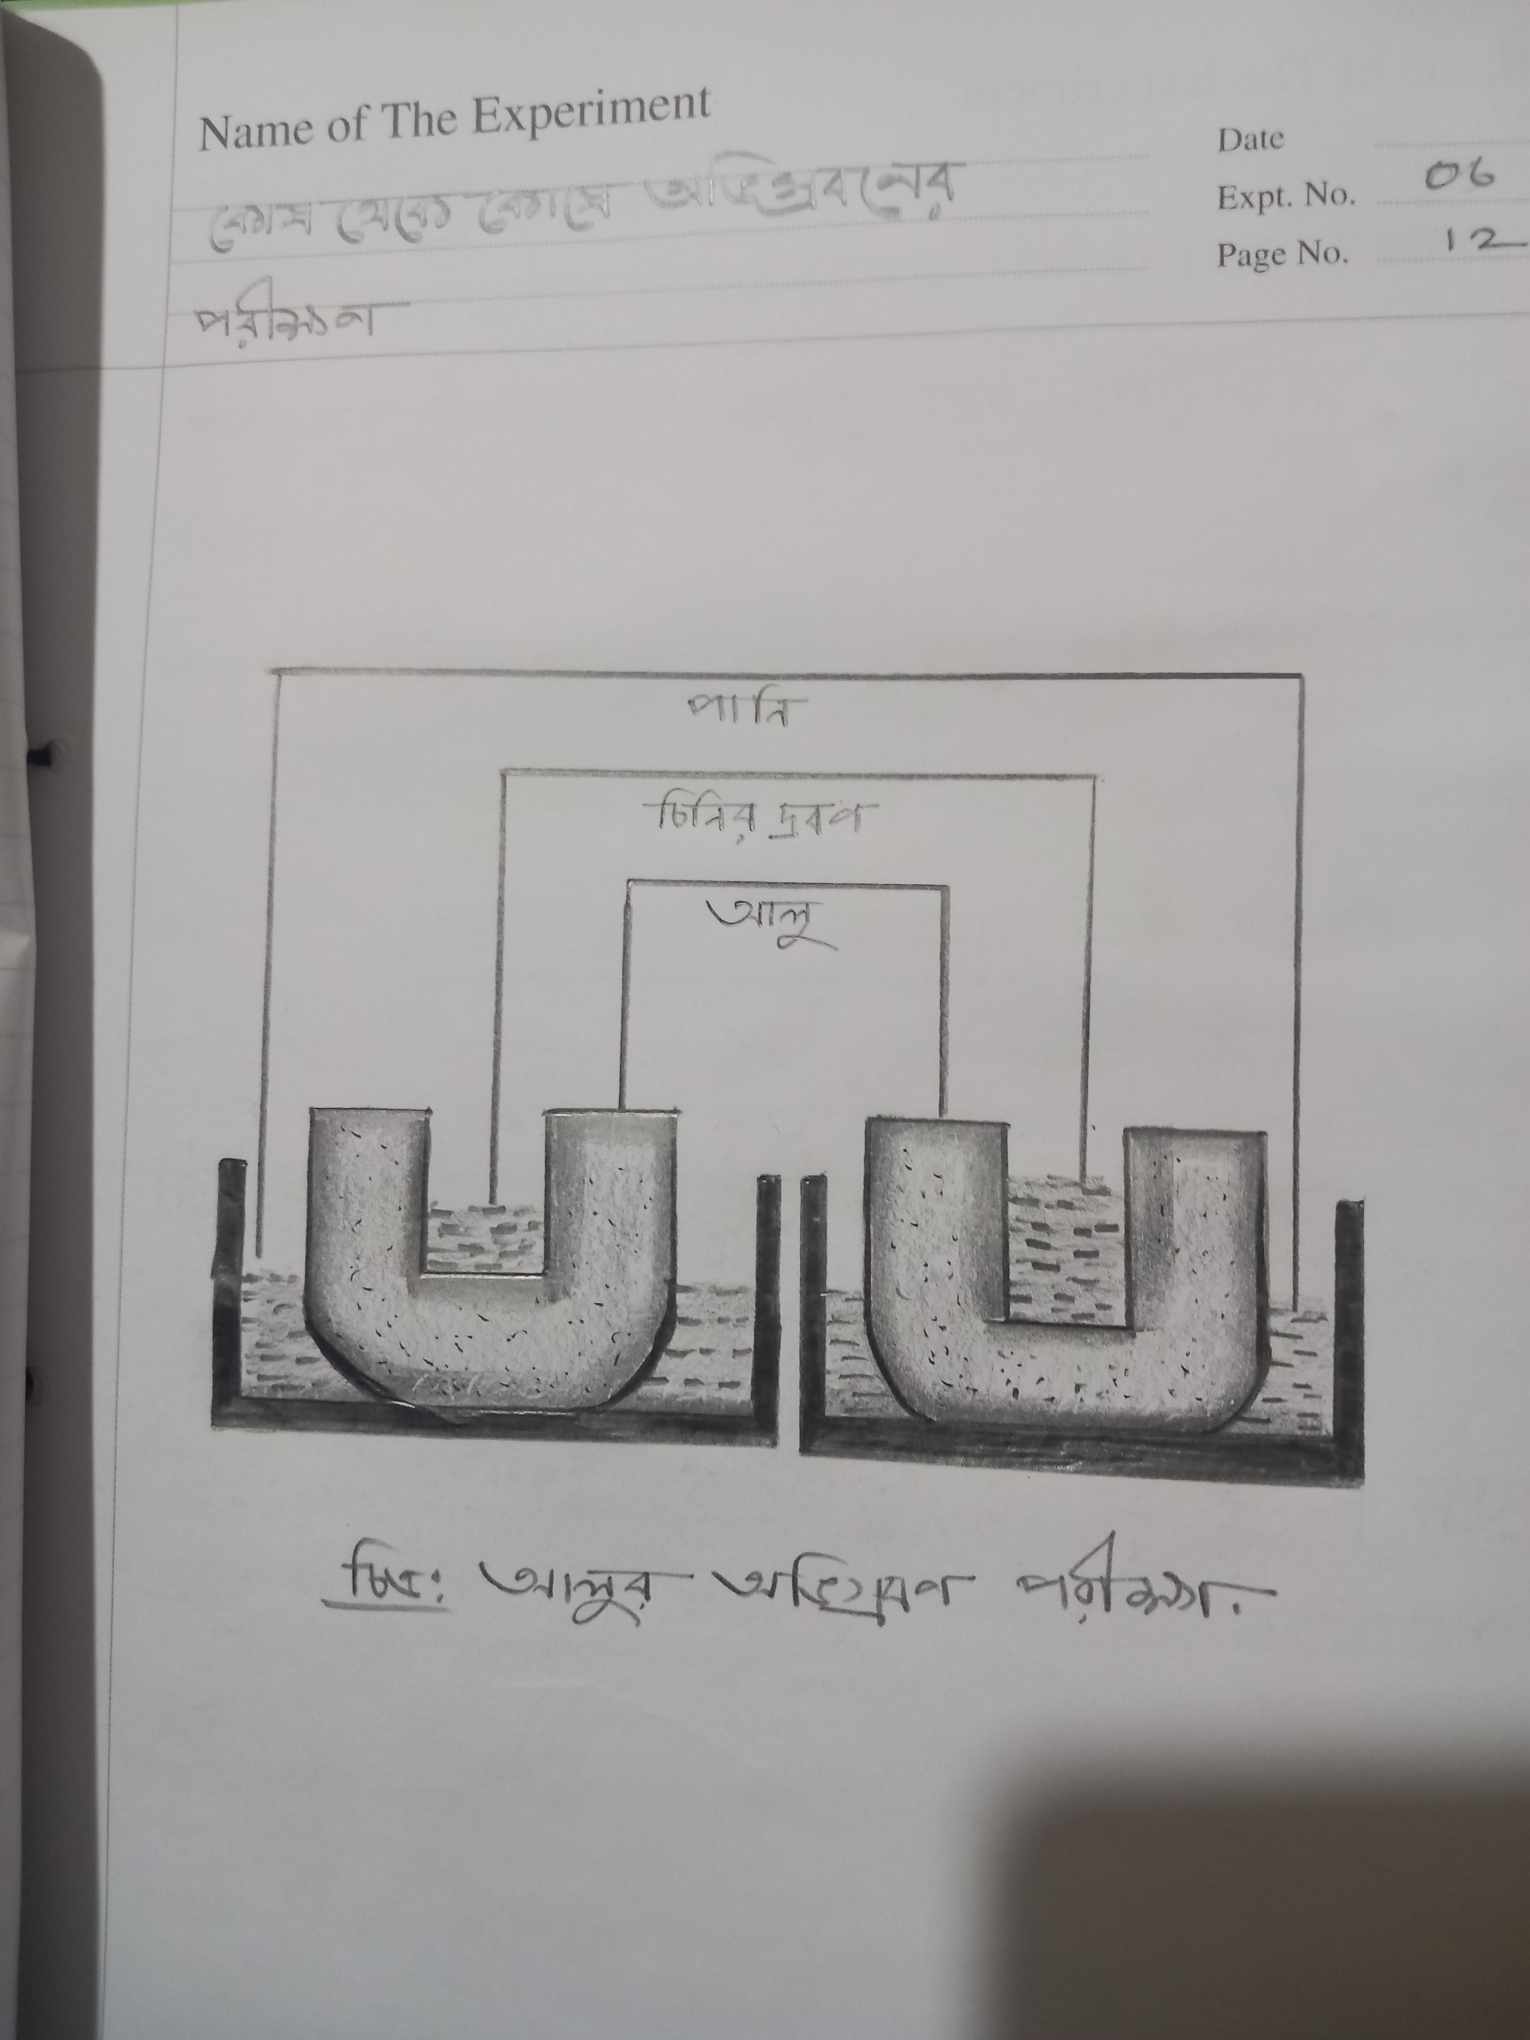 Name of The Experiment
কোষ থেকে কোষে অভিস্রবনের
পরীক্ষণ
Date
Expt. No. 06
Page No. 12
পানি
চিনির দ্রবণ
আলু
চিত্র: আলুর অভিস্রবণ পরীক্ষা.